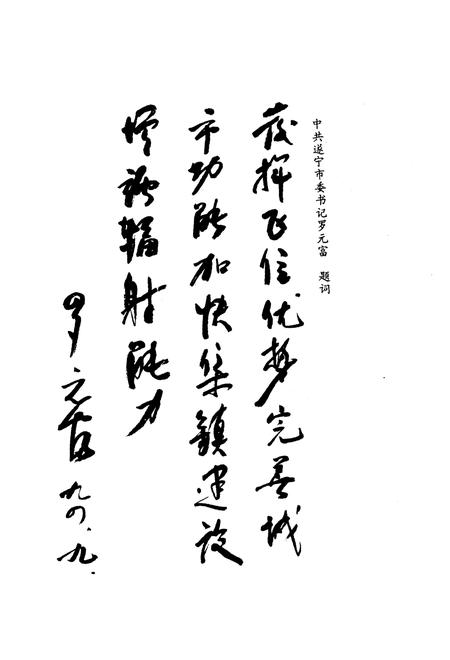 中共遂宁市委书记罗元富 题词
发挥区位优势完善城
市功能加快集鎮建设
增强辐射能力
罗元富 九四.九.